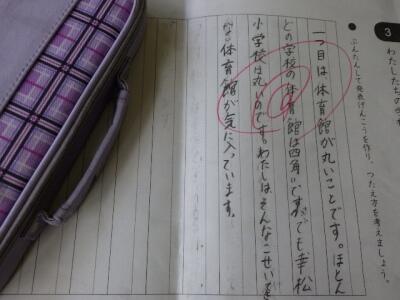 3
わたしたちの学
●ぶんたんして発表げんこうを作り、つたえ方を考えましょう。
一つ目は体育館が丸いことです。ほとん
どの学校の体育館は四角いですが、でも幸松
小学校は丸いのです。わたしはそんなこせいを
体育館が気に入っています。